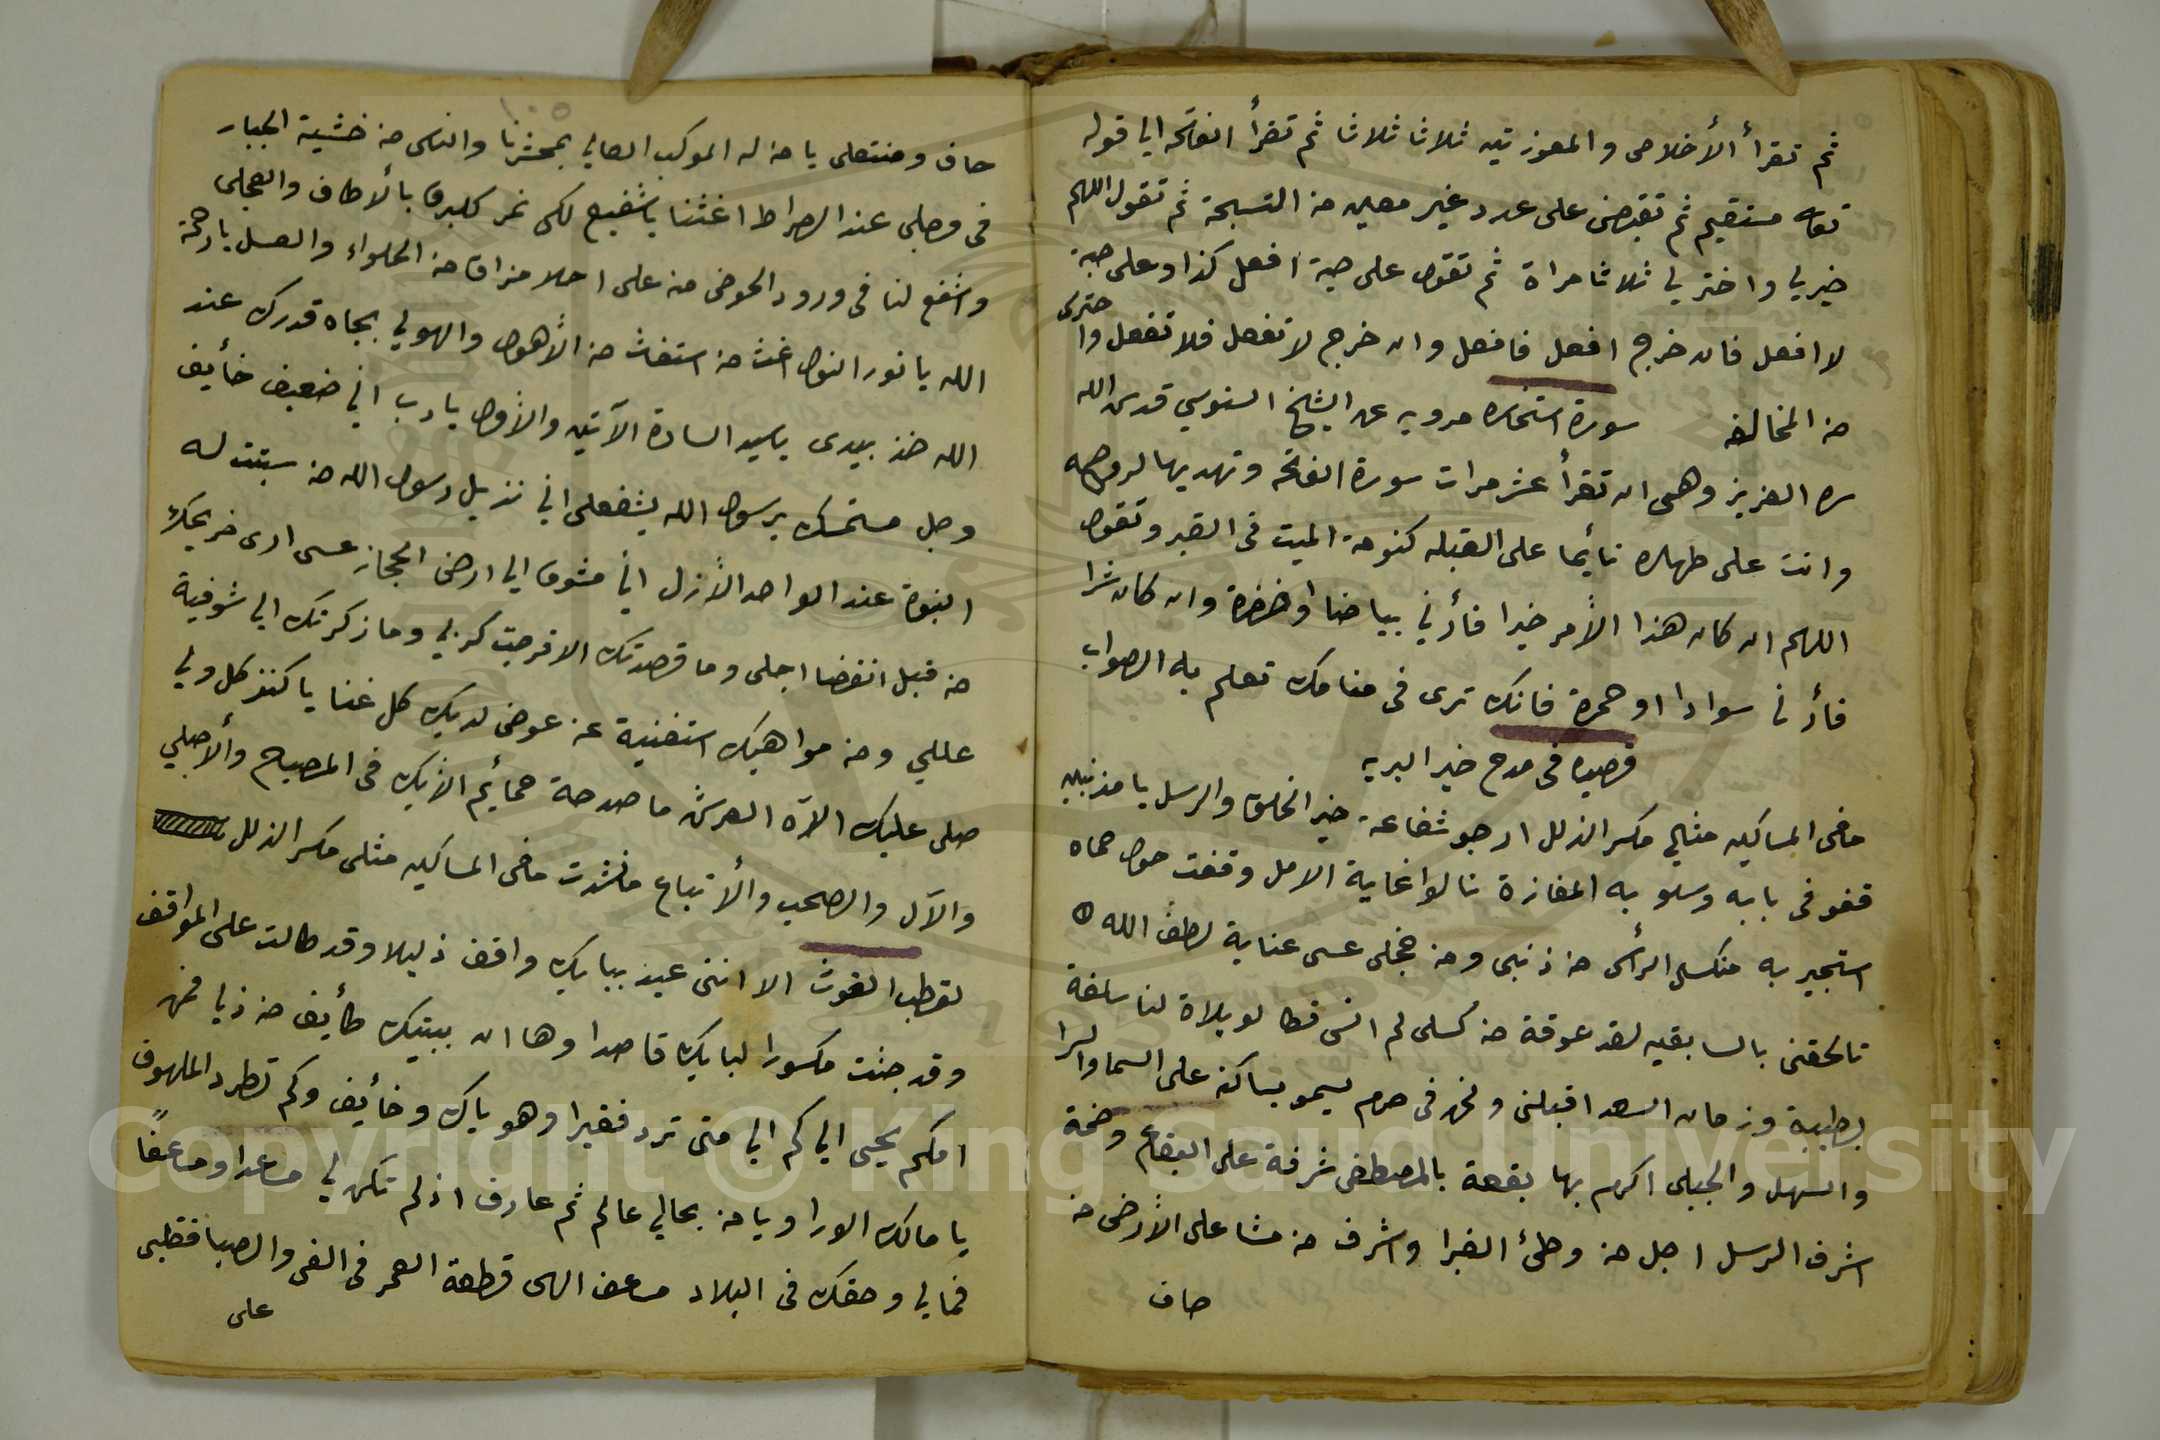 ثم تقرأ الأخلاص والمعوزتين ثلاثا ثلاثا ثم تقرأ الفاتحه الي قوله
تعاله مستقيم ثم تقبض على عدد غير معين من التسبحة ثم تقول اللهم
خيرلي واخترلي ثلاثا مراة ثم تقول على حبة افعل كذا وعلى حبة
لا افعل فان خرج افعل فافعل وان خرج لا تفعل فلا تفعل واحترى
من المخالفه سورة استخاره مرويه عن الشيخ السنوسي قدس الله
سره العزيز وهى ان تقرأ عشر مرات سورة الفاتحه وتهديها لروحه
وانت على طهاره نأيما على القبله كنومة الميت فى القبر وتقول
اللهم ان كان هذا الأمر خيرا فأرني بياضا او خضرة وان كان شرا
فأرنى سوادا او حمرة فانك ترى فى منامك تعلم به الصواب
قصيده فى مدح خير البريه
مضى المساكين مثلي مكسر الذلل ارجو شفاعة خير الخلق والرسل يا مذنبين
قفو فى بابه وسلو به المفازة نالوا غاية الامل وقفت حول حماه
استجير به منكس الرأس من ذنبى ومن خجلى عسى عناية لطف الله
تلحقنى بالسابقين لقد عوقة من كسلى لم انسى قط لويلاة لنا سلفة
بطيبة وزمان السعد اقبلنى ونحن فى حرم يسمو بساكنه على السما والسرا
والسهل والجبلى اكرم بها بقعة بالمصطفى شرفة على البقاع وضمة
اشرف الرسل اجل من وطئ الغبرا واشرف من مشا على الأرض من
حاف
حاف ومنتعلى يا من له الموكب العالي بمحشرنا والناس من خشية الجبار
فى وجلى عند الصراط اغثنا يا شفيع لكى نمر كالبرق بالألاطاف والعجلى
واشفع لنا فى ورود الحوض من على احلا مزاقا من الحلواء والعسل يا رحمة
الله يا نور النول اغث من استغاث من الأهول والهولي بجاه قدرك عند
الله خذ بيدى يا سيد السادة الآتين والأول يا رب اني ضعيف خأيف
وجل مستمسك برسول الله يشفعلى اني نزيل رسول الله من سبقت له
النبوة عند الواحد الأزل اني مشوق الي ارض الحجاز عسى ارى ضريحك
من قبل انقضا اجلى وما قصدتك الا فرجت كربي وما زكرتك الي شوفية
عللي ومن مواهبك استغنية عن عوض لديك كل غنا يا كنز كل ولي
صلى عليك الآه العرش ما صدحة حمأيم الأيك فى المصباح والأصلي
والآل والصحب والأتباع ما نشدت مضى المساكين مثلى مكسر الذلل
لقطب الغوث الا اننى عبد ببابك واقف ذليلا وقد طالت على المواقف
وقد جئت مكسورا لبابك قاصدا وها ان ببيتك طأيف من ذيا فهر
امكم يحيى الي كم الي متى ترد فقيرا وهو باك وخأيف وكم تطرد الملهوف
يا مالك الورا ويا من بحالي عالم ثم عارف اذ لم تكن لي مساعدا ومساعفاً
فمالي وحقك فى البلاد مساعف الهى قطعة العمر فى الغى والصبا فقلبى
على